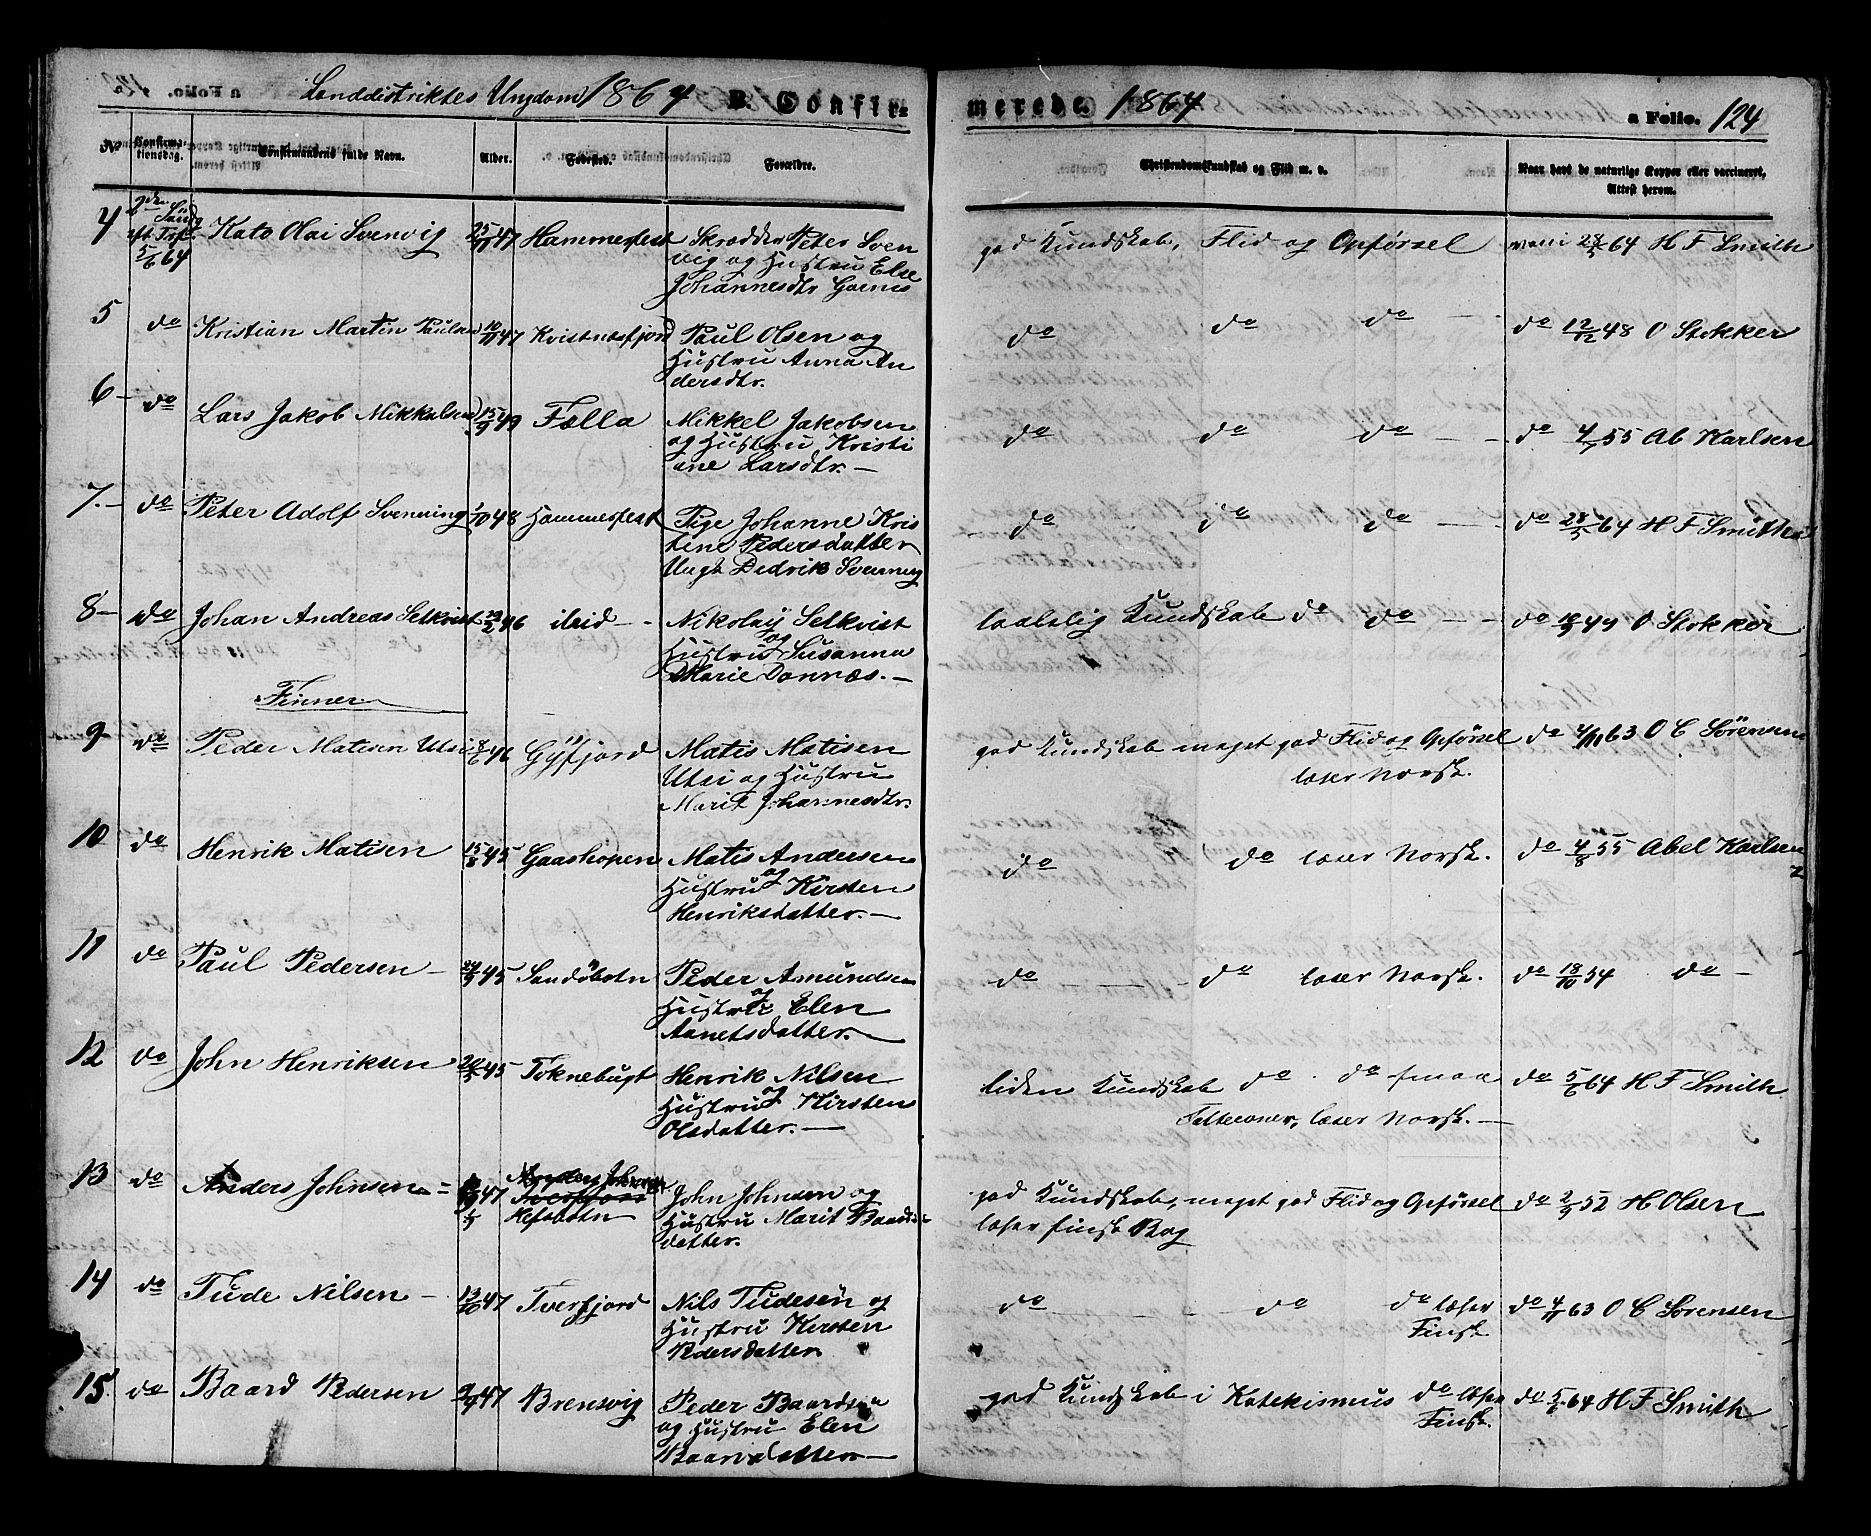 Landdistriktes Ungdom 1864 B. Confir=
merede. 1864 a Folio. 124
No Konfirmationsdag. Confirmandens fulde Navn. Alder. Fødested. Forældre.
Christendomskundskab og Flid m. v. Naar havt de naturlige Kopper eller vaccineret, Attest herom.
4 2den Sönd eft Trf. 5/6 64 Kato Olai Svenvig 47 Hammerfest Skrædder Peter Sven
vig og Hustru Else
Johannesdtr
god Kundskab, Flid og Opförsel vacci 64 H F Smith
5 do Kristian Martin Paulsen 47 Kvistnæsfjord Paul Olsen og
Hustru Anna An
dersdtr.
do do do do 12/12 48 O Stokker
6 do Lars Jakob Mikkalsen 15/9 49 Fælla Mikkel Jakobsen
og Hustru Kristi
ane Larsdtr.
do do do do 55 Ab Karlsen
7. do Peter Adolf Svenning 48 Hammerfest Pige Johanne Kris
tine Pedersdatter
Ungk Didrik Svenning
do do do do 64 H F Smith
8 do Johan Andreas Selkvist 46 ibid Nikolaij Selkvist
og
Hustru Susanna
Marie Dønnæs.
taalelig Kundskab do do do 49 O Stokker
Finner
9 do Peder Matisen Utsi 46 Gåsfjord Matis Matisen
Utsi og Hustru
Marit Johannesdtr.
god Kundskab meget god Flid og Opförsel do 4/11 63 O C Sörensen
læser Norsk.
10 do Henrik Matisen 15/8 45 Gaashopen Matis Andersen
og
Hustru Kirsten
Henriksdatter.
do do læser Norsk. do 4/8 55 Abel Karlsen
11 do Paul Pedersen 45 Sandöbotn Peder Amundsen
og
Hustru Elen
Aanetsdatter.
do do læser Norsk. do 18/10 54 do
12 do John Henriksen 45 Toknebugt Henrik Nilsen
og
Hustru Kirsten
Olsdatter.
liden Kundskab do do smaa do 5/6 64 H F Smith
Fatteevner, læser Norsk.
13 do Anders Johnsen 47 Refsbotn John Johnsen og
Hustru Marit Baards
datter.
god Kundskab, meget god Flid og Opförsel do 2/9 52 H Olsen
læser finsk Bog
14 do Tude Nilsen 13/10 47 Tverfjord Nils Tudesen og
Hustru Kirsten
Pedersdatter
do do do læser do 4/11 63 O C Sörensen
Finsk
15. do Baard Pedersen 47 Brensvig Peder Baardsen
og Hustru Elen
Baardsdatter
god Kundskab i Katekismus do læser do 5/6 64 H F Smith
Finsk